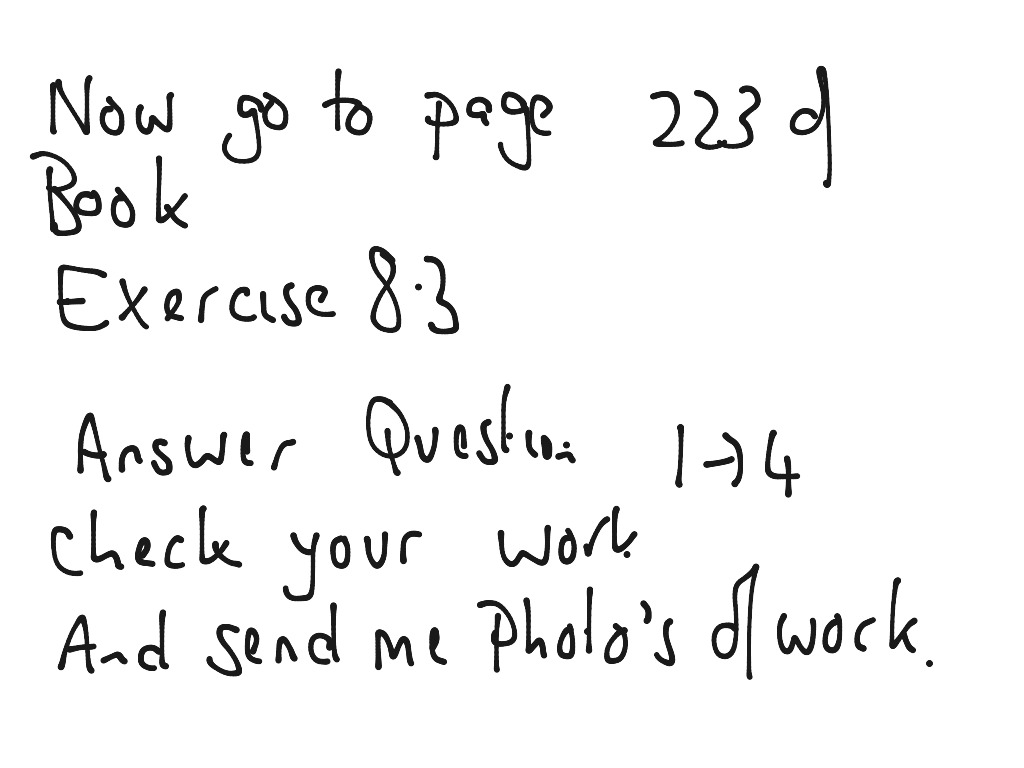 Now go to page 223 of
Book
Exercise 8.3
Answer Question 1→4
check your work
And send me Photo's of work.